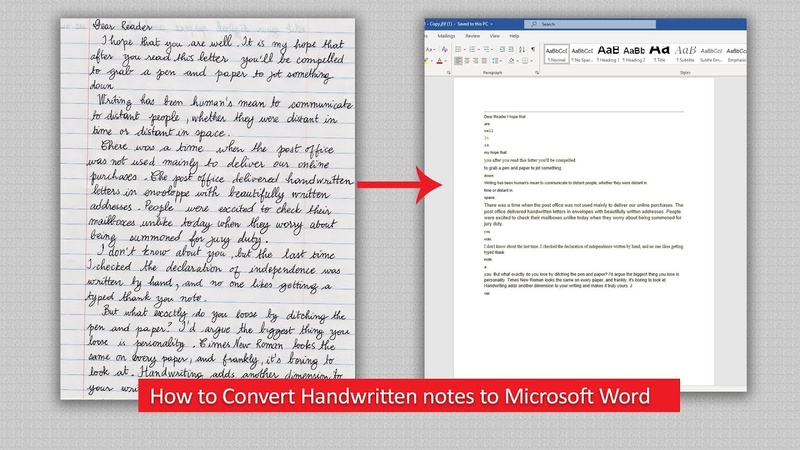 Dear Reader
I hope that you are well. It is my hope that
after you read this letter you'll be compelled
to grab a pen and paper to jot something
down
Writing has been human's mean to communicate
to distant people, whether they were distant in
time or distant in space.
There was a time when the post office
was not used mainly to deliver our online
purchases. The post office delivered handwritten
letters in enveloppe with beautifully written
addresses. People were excited to check their
mailboxes unlike today when they worry about
being summoned for jury duty.
I don't know about you, but the last time
I checked the declaration of independence was
written by hand, and no one likes getting a
typed thank you note.
But what exactly do you loose by ditching the
pen and paper? I'd argue the biggest thing you
loose is personality. Times New Roman looks the
same on every paper, and frankly, it's boring to
look at. Handwriting adds another dimension to
your
- Copy.jfif (1) - Saved to this PC
Search
Mailings Review View Help
AaBbCcDc AaBbCcDc AaB AaBb Aa AaB AaBbCcE AaBbCcDt AaBbCcDt
¶ Normal ¶ No Spac... ¶ Heading 1 ¶ Heading 2 Title ¶ Title Subtitle Subtle Em... Emphasis
Paragraph Styles
Dear Reader I hope that
are
well
It
is
my hope that
you after you read this letter you'll be compelled
to grab a pen and paper to jot something
down
Writing has been human's mean to communicate to distant people, whether they were distant in
time or distant in
space.
There was a time when the post office was not used mainly to deliver our online purchases. The
post office delivered handwritten letters in envelopes with beautifully written addresses. People
were excited to check their mailboxes unlike today when they worry about being summoned for
jury duty.
you
I don't know about the last time. I checked the declaration of independence written by hand, and no one likes getting
typed thank
note.
a
you. But what exactly do you lose by ditching the pen and paper? I'd argue the biggest thing you lose is
personality. Times New Roman looks the same on every paper, and frankly, it's boring to look at.
Handwriting adds another dimension to your writing and makes it truly yours. J
How to Convert Handwritten notes to Microsoft Word